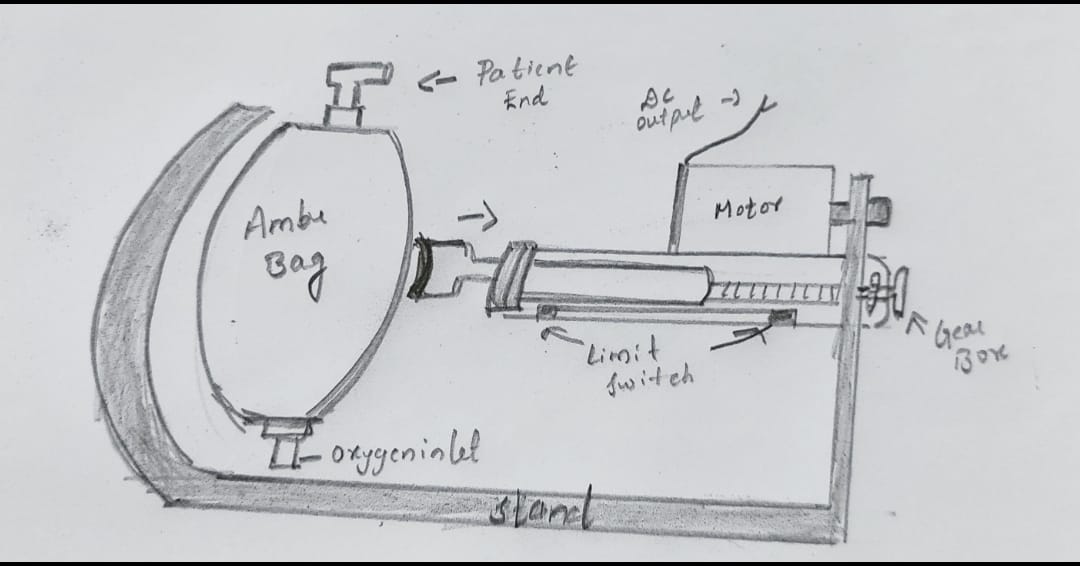 Patient
End
DC
output
Motor
Ambu
Bag
Limit
Switch
Gear
Box
oxygeninlet
stand